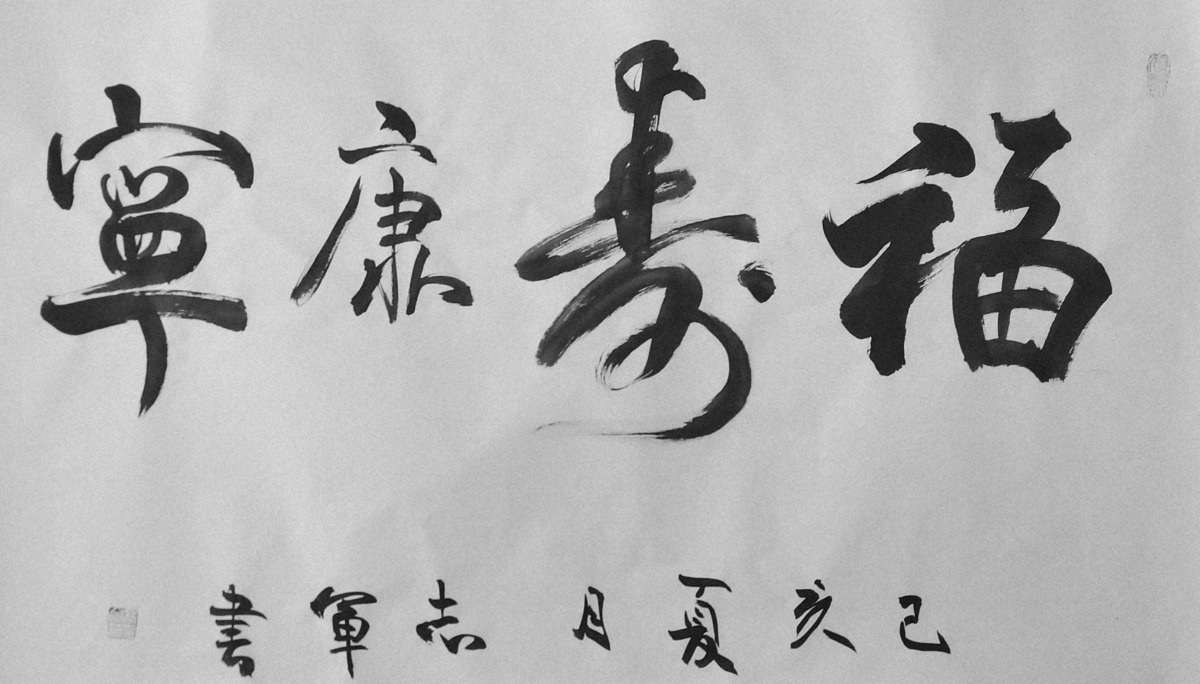 福壽康寧
己亥夏月志軍書